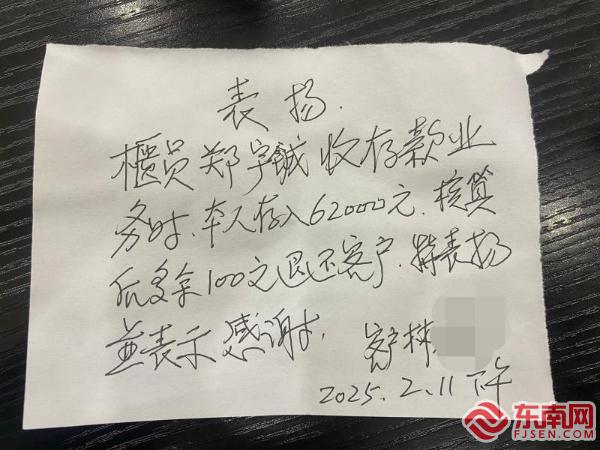 表扬.
櫃员郑宇铖收存款业
务时.本人存入62000元.核算
后多拿100元退还客户.特表扬
並表示感谢.
客户林
2025.2.11下午
东南网
FJSEN.COM